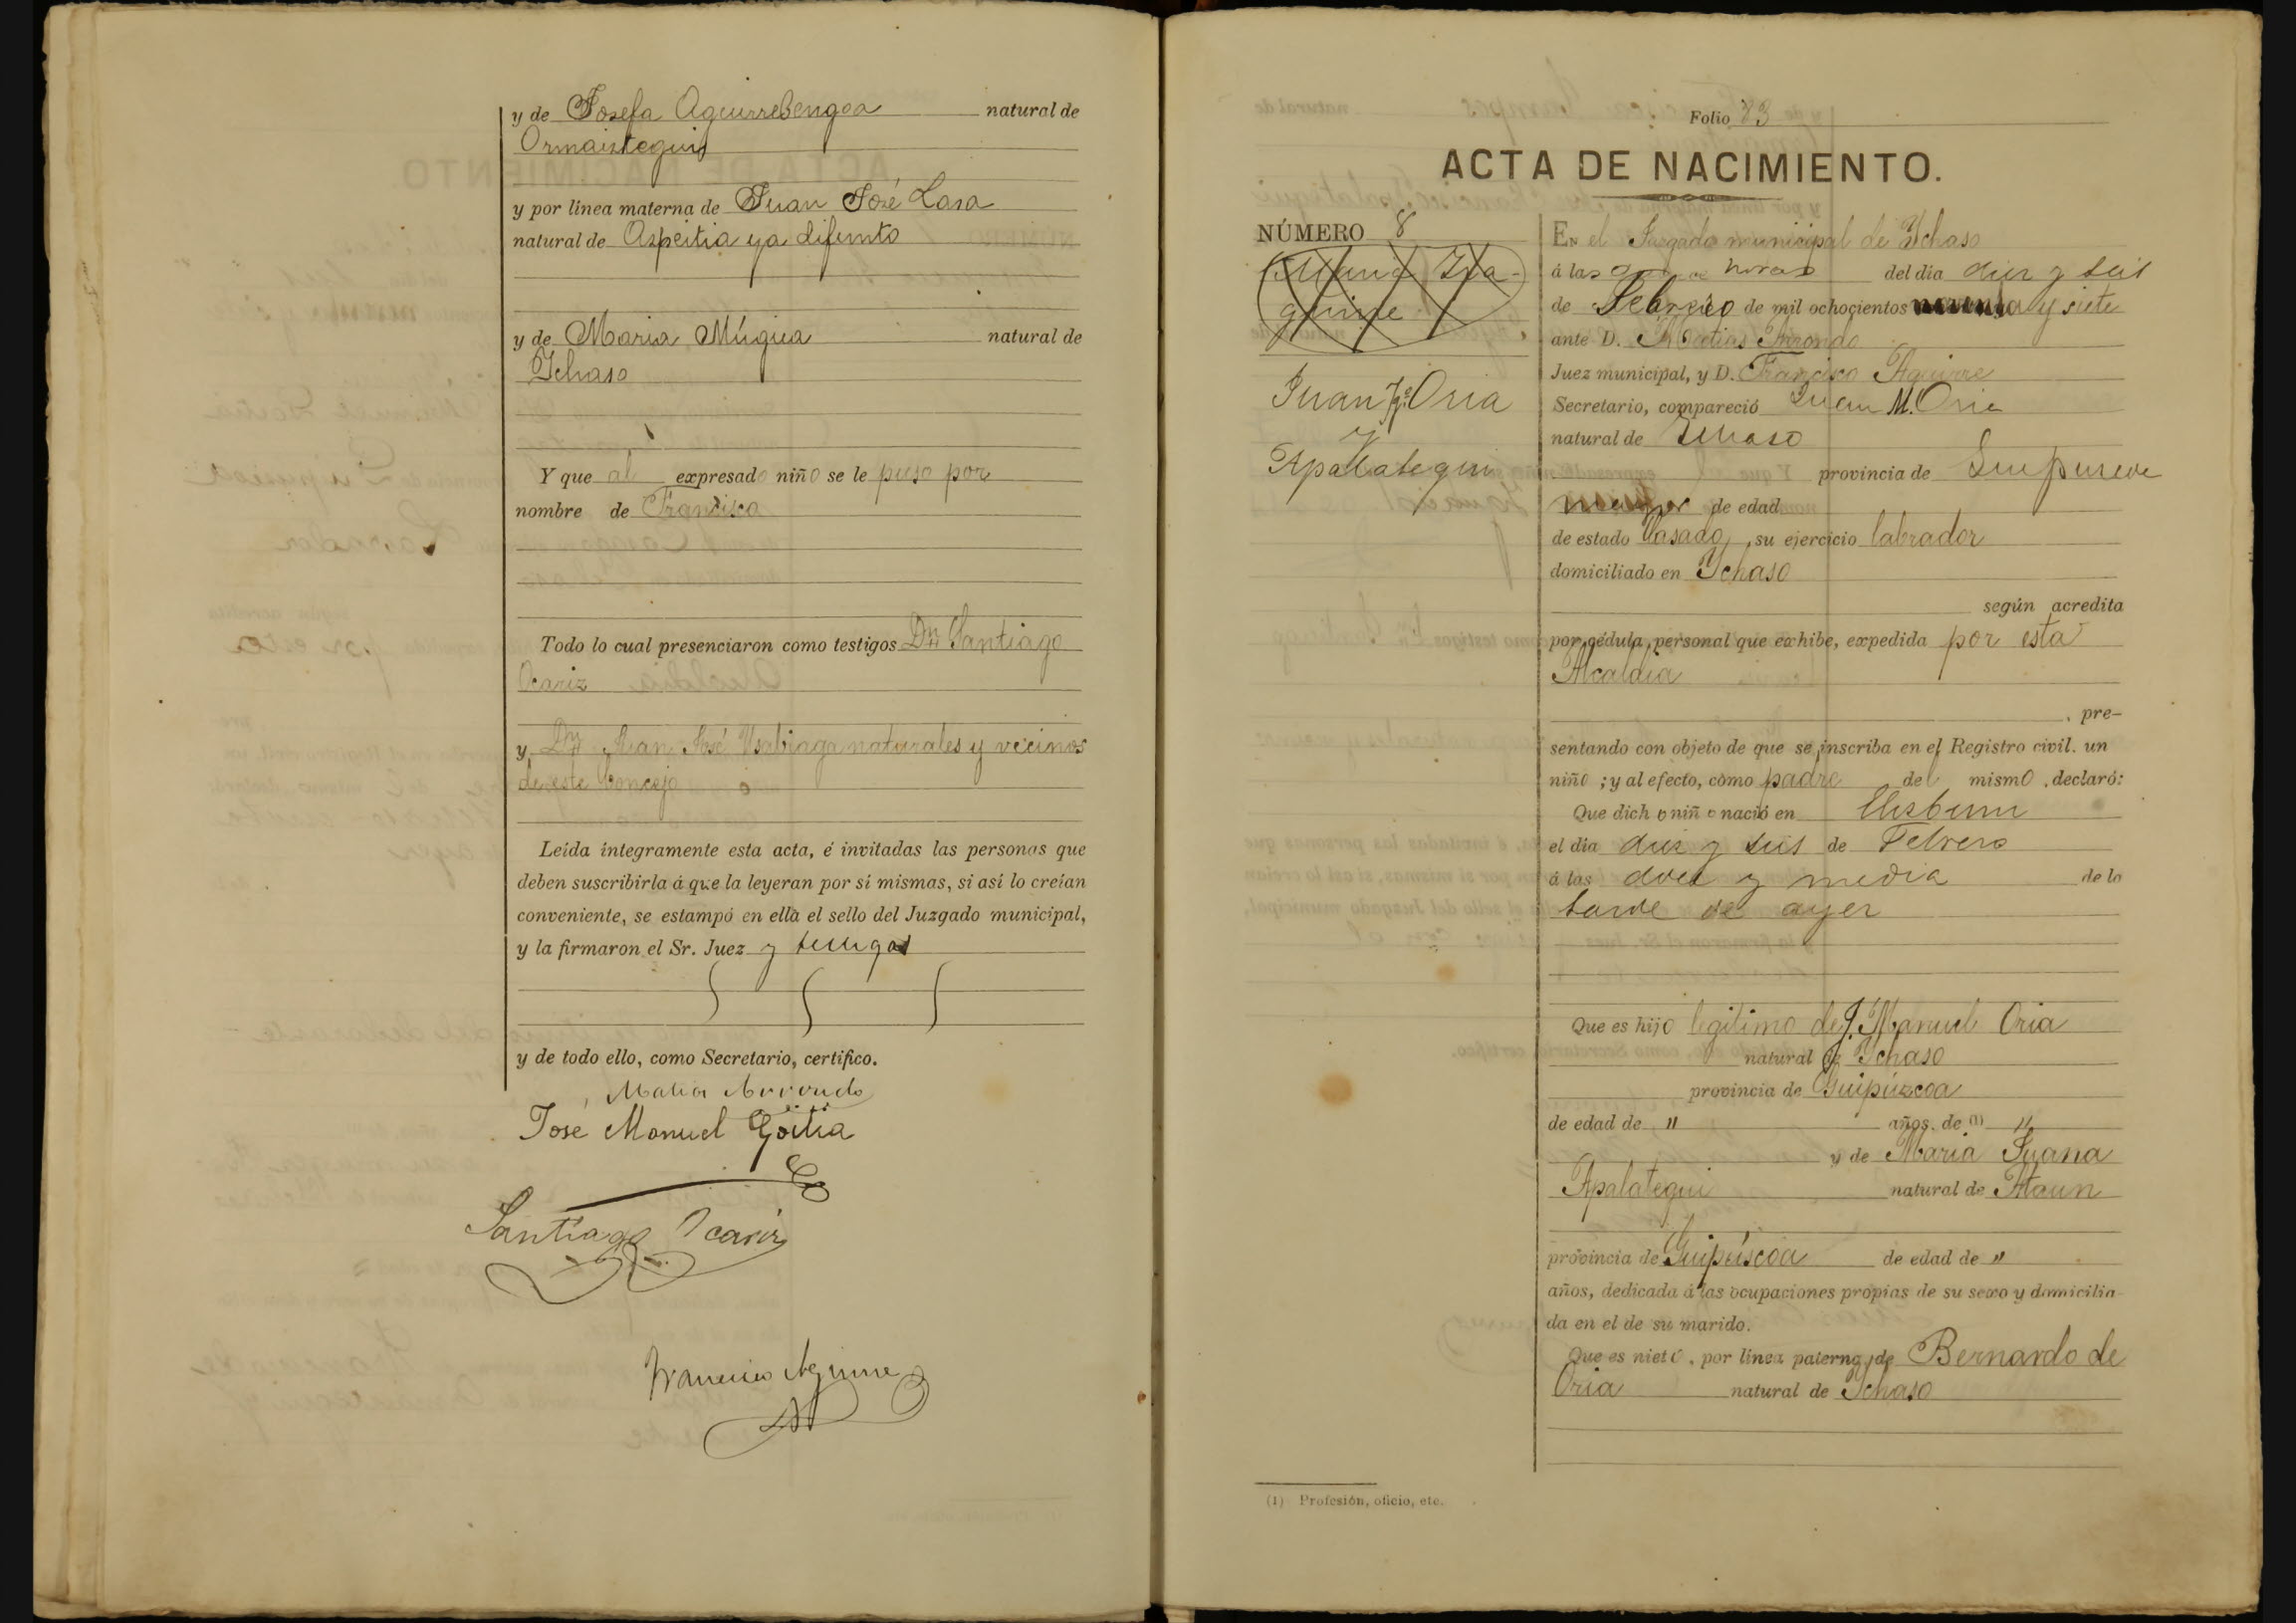 y de Josefa Aguirrebengoa natural de
Ormaiztegui
y por línea materna de Juan José Lasa
natural de Azpeitia ya difunto
y de Maria Múgica natural de
Ichaso
Y que al expresado niño se le puso por
nombre de Francisco
Todo lo cual presenciaron como testigos Dn Santiago
Ocariz
y Dn Juan José Usabiaga naturales y vecinos
de este Concejo
Leída íntegramente esta acta, é invitadas las personas que
deben suscribirla á que la leyeran por sí mismas, si así lo creían
conveniente, se estampó en ella el sello del Juzgado municipal,
y la firmaron el Sr. Juez y testigos
y de todo ello, como Secretario, certifico.
Matias Arrondo
José Manuel Goitia
Santiago Ocariz
Francisco Aguirre
Folio 83
ACTA DE NACIMIENTO.
NÚMERO 8
Juan Je. Oria
y
Apalategui
En el Juzgado municipal de Ychaso
á las horas del dia diez y seis
de Febrero de mil ochocientos noventa y siete
ante D. Matias Arrondo
Juez municipal, y D. Francisco Aguirre
Secretario, compareció Juan M. Oria
natural de Ichaso
provincia de Guipuzcoa
mayor de edad
de estado Casado, su ejercicio labrador
domiciliado en Ychaso
según acredita
por cédula personal que exhibe, expedida por esta
Alcaldia
, pre-
sentando con objeto de que se inscriba en el Registro civil. un
niño ; y al efecto, como padre del mismo, declaró:
Que dicho niño nació en
el día diez y seis de Febrero
á las doce y media de la
tarde de ayer
Que es hijo legitimo de J. Manuel Oria
natural de Ychaso
provincia de Guipúzcoa
de edad de " años. de (1) "
y de Maria Juana
Apalategui natural de Ataun
provincia de Guipúscoa de edad de "
años, dedicada á las ocupaciones propias de su sexo y domicilia-
da en el de su marido.
Que es nieto, por línea paterna, de Bernardo de
Oria natural de Ychaso
(1) Profesión, oficio, etc.